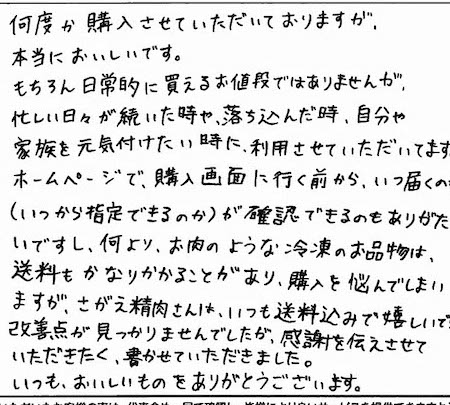 何度か購入させていただいておりますが、
本当においしいです。
もちろん日常的に買えるお値段ではありませんが、
忙しい日々が続いた時や、落ち込んだ時、自分や
家族を元気付けたい時に、利用させていただいてます
ホームページで、購入画面に行く前から、いつ届くの
(いつから指定できるのか)が確認できるのもありがた
いですし、何より、お肉のような冷凍のお品物は、
送料もかなりかかることがあり、購入を悩んでしまい
ますが、さがえ精肉さんは、いつも送料込みで嬉しいで
改善点が見つかりませんでしたが、感謝を伝えさせて
いただきたく、書かせていただきました。
いつも、おいしいものをありがとうございます。